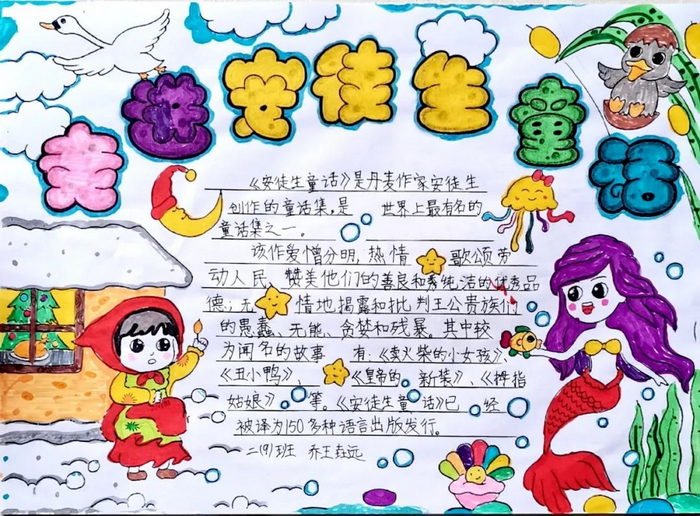 走进安徒生童话
《安徒生童话》是丹麦作家安徒生
创作的童话集,是 世界上最有名的
童话集之一。
该作爱憎分明,热情 歌颂劳
动人民、赞美他们的善良和纯洁的优秀品
德;无 情地揭露和批判王公贵族们
的愚蠢、无能、贪婪和残暴。其中较
为闻名的故事 有:《卖火柴的小女孩》、
《丑小鸭》、 《皇帝的 新装》、《拇指
姑娘》 等。《安徒生童话》已 经
被译为150多种语言出版发行。
二(9)班 乔王垚远